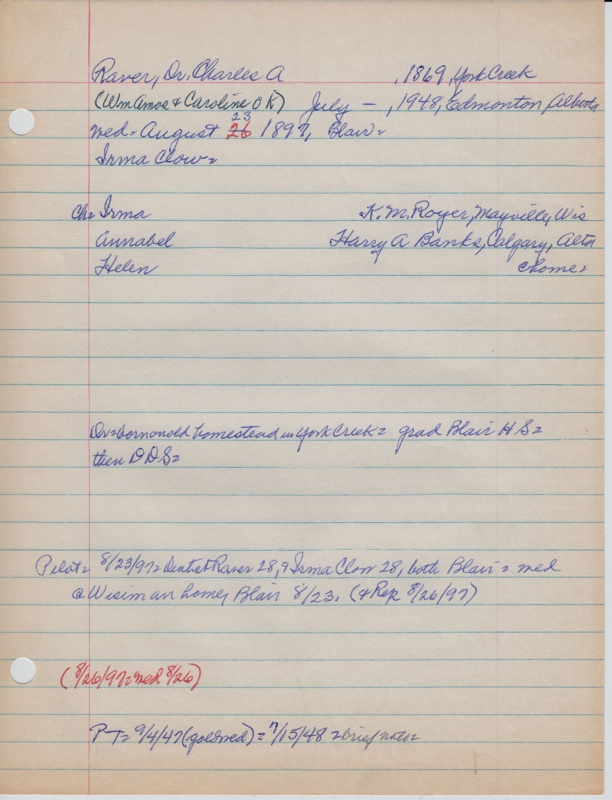 Raver, Dr. Charles A , 1869, York Creek
(Wm Amos & Caroline OK) July - , 1948, Edmonton, Alberta
23
med = August 26 1897, Blair =
Irma Clow =
Ch = Irma K. M. Royer, Mayville, Wis
Annabel Harry A Banks, Calgary, Alta
Helen @ home =
Dr = born on old homestead in York Creek = grad Blair H S =
then D D S =
Pilot = 8/23/97 = Dentist Raver 28, & Irma Clow 28, both Blair = med
@ Wisiman home, Blair 8/23. (& Rep 8/26/97)
(8/26/97 = med 8/26)
P-T = 9/4/47 (gold wed) = 7/15/48 = brief note